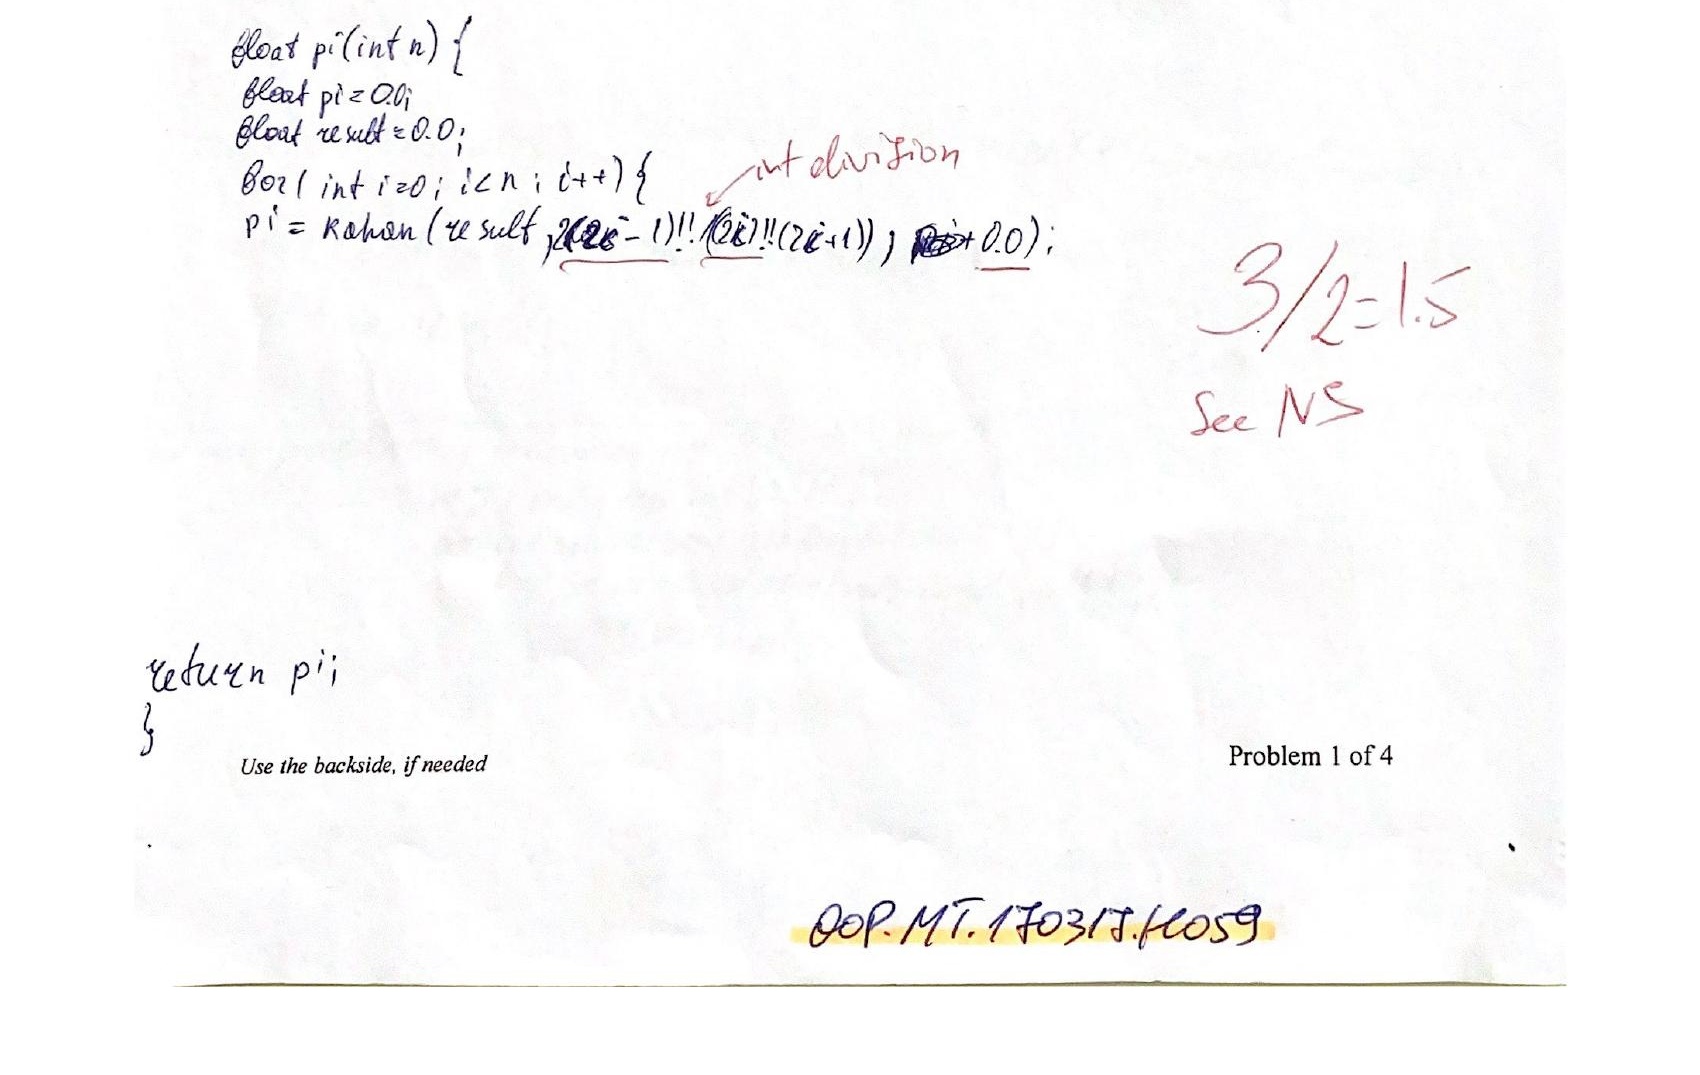 float pi(int n) {
float pi = 0.0;
float result = 0.0;
int division
for( int i=0; i<n; i++) {
pi = Kahan (result, 2(2i-1)!!/(2i)!!(2i+1)), 0.0);
3/2=1.5
See NS
return pi;
}
Use the backside, if needed
Problem 1 of 4
OOP.MT.170317.H059